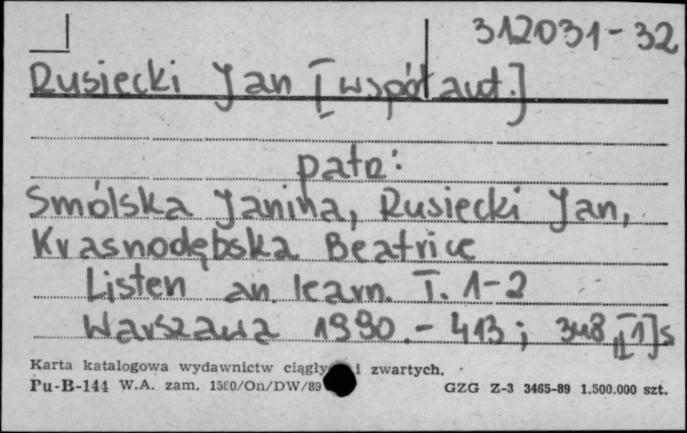 312031-32
Rusiecki Jan [współaut.]
patrz:
Smólska Janina, Rusiecki Jan,
Krasnodębska Beatrice
Listen an learn. T. 1-2
Warszawa 1990.- 413; 348,[1]s
Karta katalogowa wydawnictw ciągły i zwartych.
Pu-B-144 W.A. zam. 1560/On/DW/89 GZG Z-3 3465-89 1.500.000 szt.